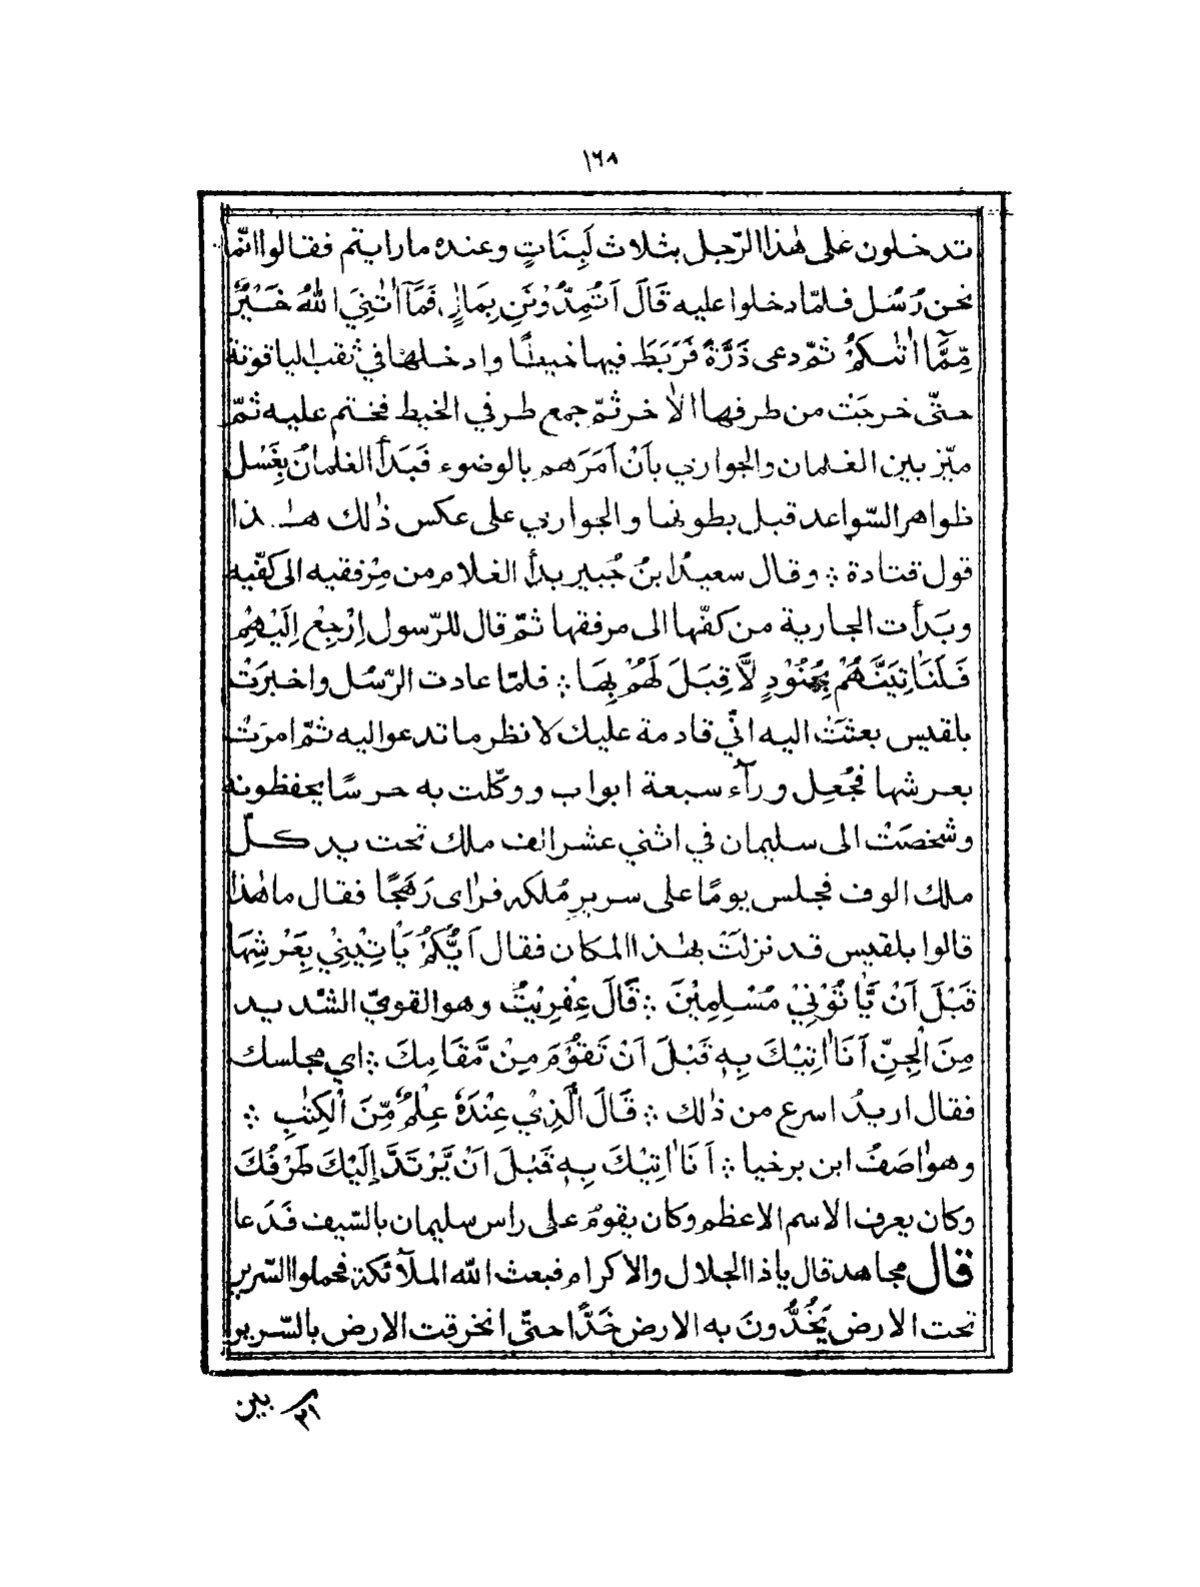 ١٦٨
تدخلون على هٰذا الرّجل بثلاث لَبِنَاتٍ وعنده ما رايتم فقالوا انّما
نحن رُسُل فلمّا دخلوا عليه قَالَ اَتُمِدُّوْنَنِ بِمَالٍ فَمَآ اٰتٰنِيَ اللّٰهُ خَيْرٌ
مِّمَّآ اٰتٰىكُمْ ثمّ دعى ذَرَّةً فَرَبَطَ فيها خيطًا وادخلها في ثقب الياقوتة
حتّى خرجَتْ من طرفها الاٰخر ثمّ جمع طرفي الخيط فختم عليه ثمّ
ميّز بين الغلمان والجواري بأَنْ اَمَرَهم بالوضوء فَبَدَأَ الغلمانُ بِغَسْل
ظواهر السّواعد قبل بطونها والجواري على عكس ذٰلك هٰذا
قول قتادة ؞ وقال سعيدُ ابنُ جُبير بدأ الغلام من مِرفقيه الى كفّيه
وبَدَأت الجارية من كفّها الى مرفقها ثمّ قال للرّسول اِرْجِعْ اِلَيْهِمْ
فَلَنَاْتِيَنَّهُمْ بِجُنُوْدٍ لَّا قِبَلَ لَهُمْ بِهَا ؞ فلمّا عادت الرّسُل واخبرَتْ
بلقيس بعثَتْ اليه انّي قادمة عليك لانظر ما تدعو اليه ثمّ امرَتْ
بعرشها فجُعِل ورآء سبعة ابواب ووكّلت به حرسًا يحفظونه
وشخصَتْ الى سليمان في اثني عشر الف ملك تحت يد كلّ
ملك الوف فجلس يومًا على سرير مُلكه فراٰى رَهَجًا فقال ما هٰذا
قالوا بلقيس قد نزلَتْ بهٰذا المكان فقال اَيُّكُمْ يَاْتِيْنِيْ بِعَرْشِهَا
قَبْلَ اَنْ يَّاْتُوْنِيْ مُسْلِمِيْنَ ؞ قَالَ عِفْرِيْتٌ وهو القويّ الشّديد
مِنَ الْجِنِّ اَنَا اٰتِيْكَ بِهٖ قَبْلَ اَنْ تَقُوْمَ مِنْ مَّقَامِكَ ؞ اي مجلسك
فقال اريدُ اسرع من ذٰلك ؞ قَالَ الَّذِيْ عِنْدَهٗ عِلْمٌ مِّنَ الْكِتٰبِ ؞
وهو اٰصَفُ ابن برخيا ؞ اَنَا اٰتِيْكَ بِهٖ قَبْلَ اَنْ يَّرْتَدَّ اِلَيْكَ طَرْفُكَ
وكان يعرف الاسم الاعظم وكان يقومُ على راس سليمان بالسّيف فَدَعا
قال مجاهد قال ياذا الجلال والاكرام فبعث اللّه الملآئكة فحملوا السّرير
تحت الارض يَخُدُّونَ به الارض خَدًّا حتّى انخرقت الارض بالسّرير
بين
٢١